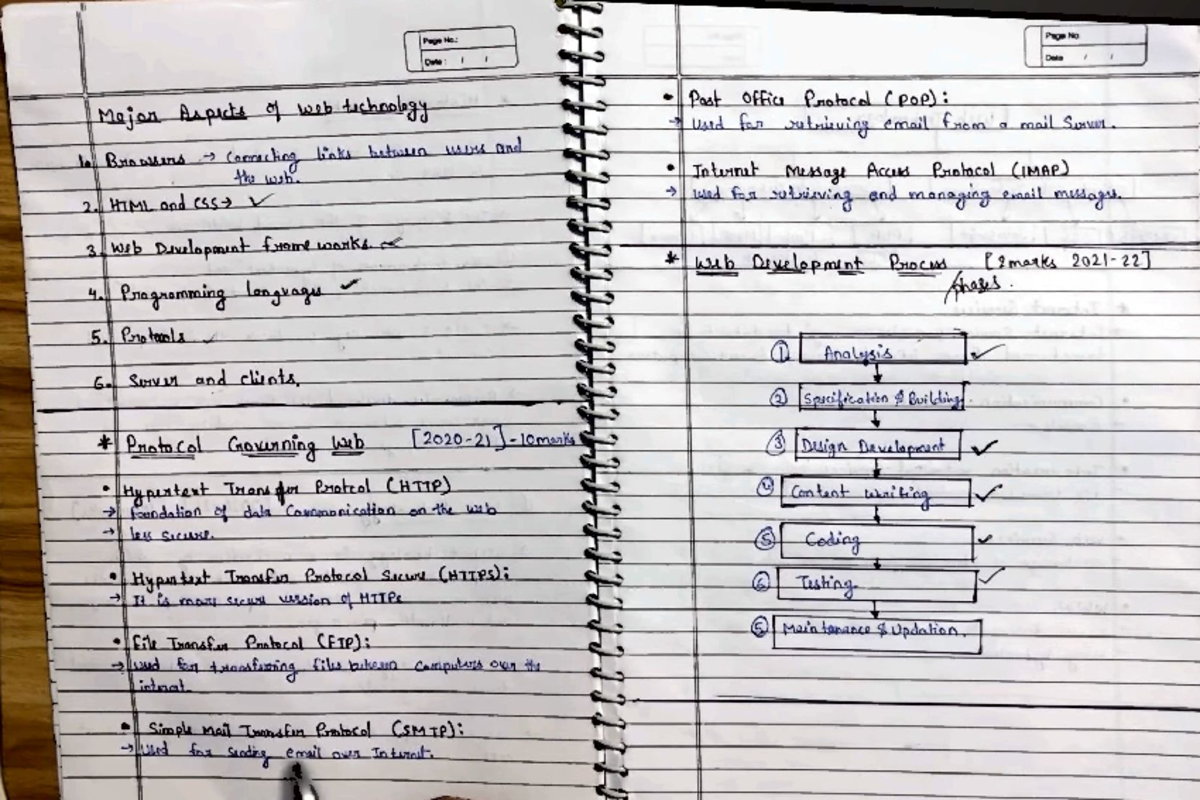 Page No.:
Date : / /
Major Aspects of web technology
1. Browsers → Connecting links between users and
the web.
2. HTML and CSS → ✓
3. Web Development frameworks ✓
4. Programming languages ✓
5. Protocols ✓
6. Server and clients.
* Protocol Governing Web [2020-21] - 10 marks
• Hypertext Transfer Protcol (HTTP)
→ foundation of data Communication on the web
→ less secure.
• Hypertext Transfer Protocol Secure (HTTPS):
→ It is more secure version of HTTP.
• File Transfer Protocol (FTP):
→ Used for transferring files between computers over the
internet.
• Simple Mail Transfer Protocol (SMTP):
→ Used for sending email over Internet.
Page No.
Date / /
• Post Office Protocol (POP):
→ Used for retrieving email from a mail Server.
• Internet Message Access Protocol (IMAP)
→ Used for retrieving and managing email messages.
* Web Development Process [2marks 2021-22]
/phases.
① Analysis ✓
② Specification & Building
③ Design Development ✓
④ Content Writing ✓
⑤ Coding ✓
⑥ Testing ✓
⑤ Maintenance & Updation.